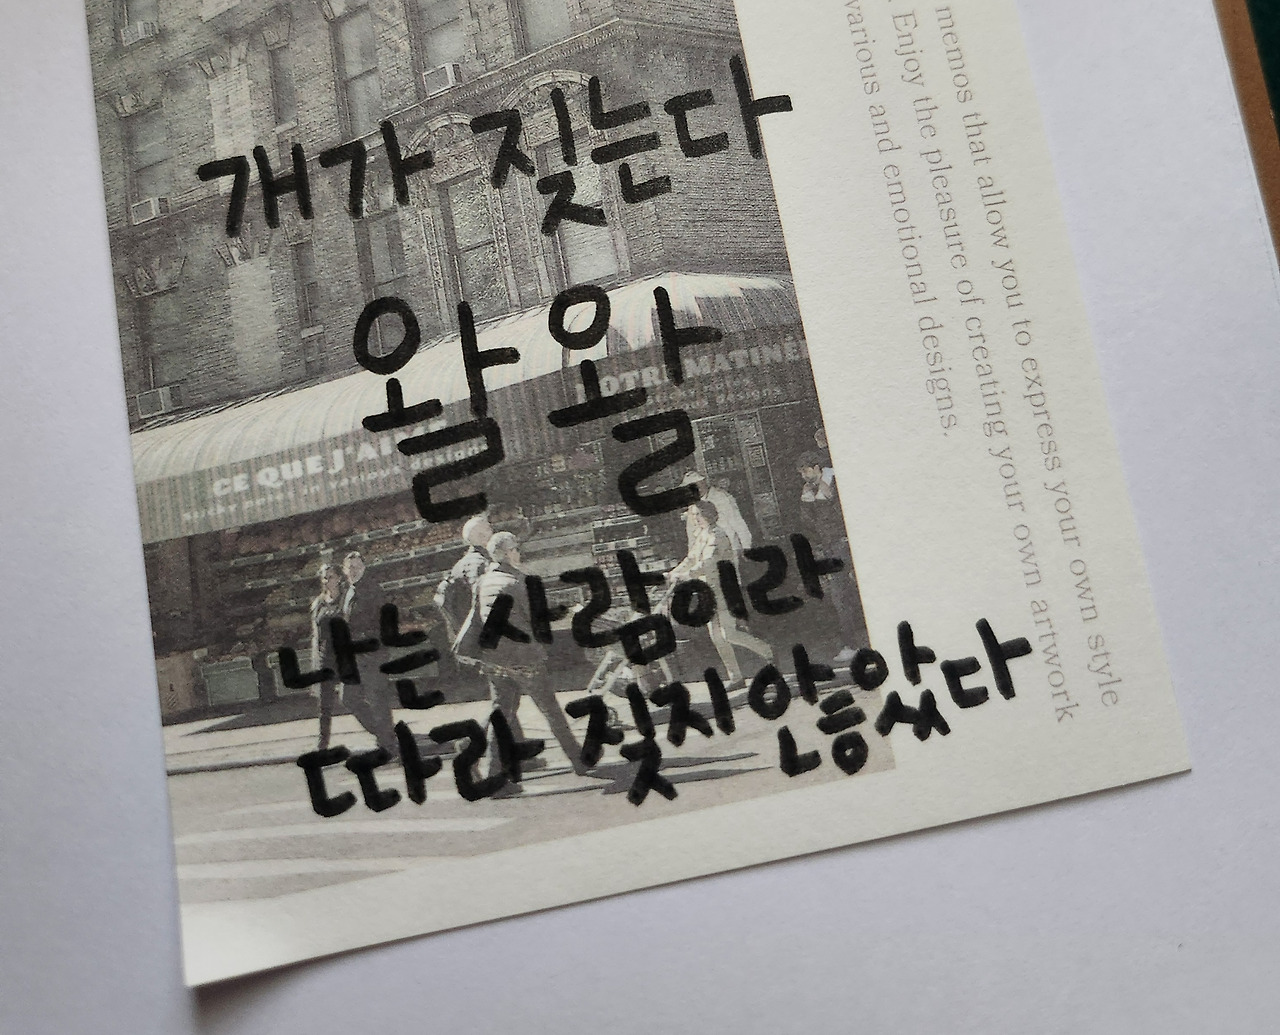 개가 짖는다
왈 왈
나는 사람이라
따라 짖지않았다
memos that allow you to express your own style
. Enjoy the pleasure of creating your own artwork
various and emotional designs.
CE QUE
various designs